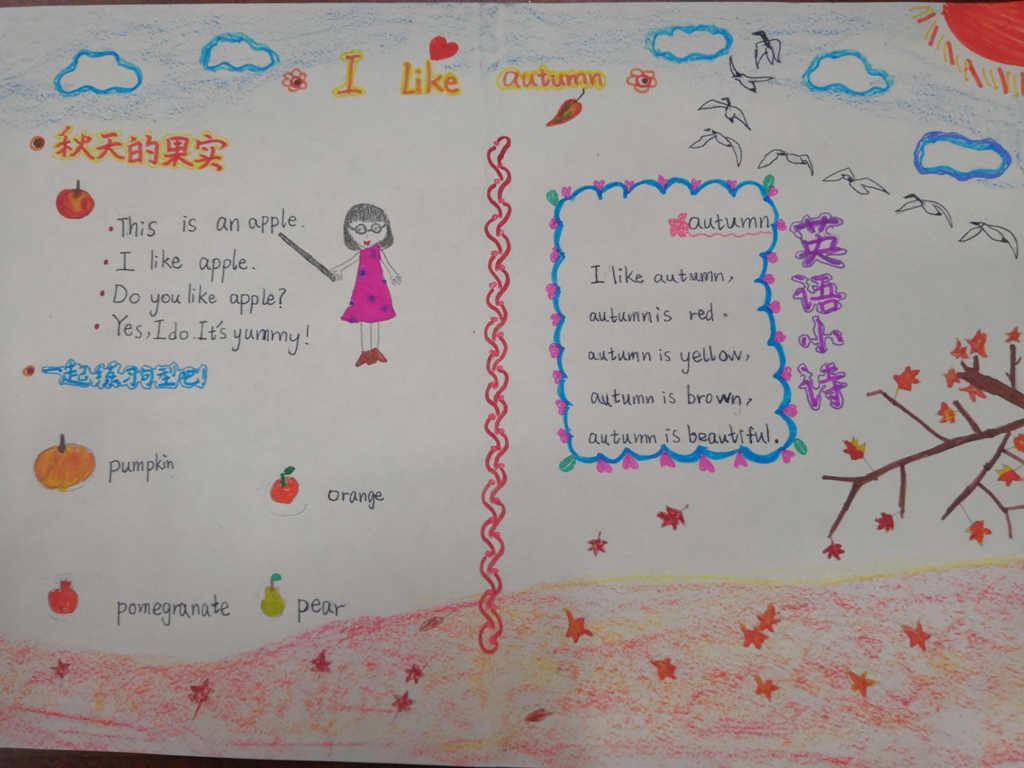 I Like autumn
秋天的果实
This is an apple.
I like apple.
Do you like apple?
Yes, I do. It's yummy!
一起练习句型吧!
pumpkin
orange
pomegranate
pear
autumn
I like autumn,
autumn is red.
autumn is yellow,
autumn is brown,
autumn is beautiful.
英语小诗